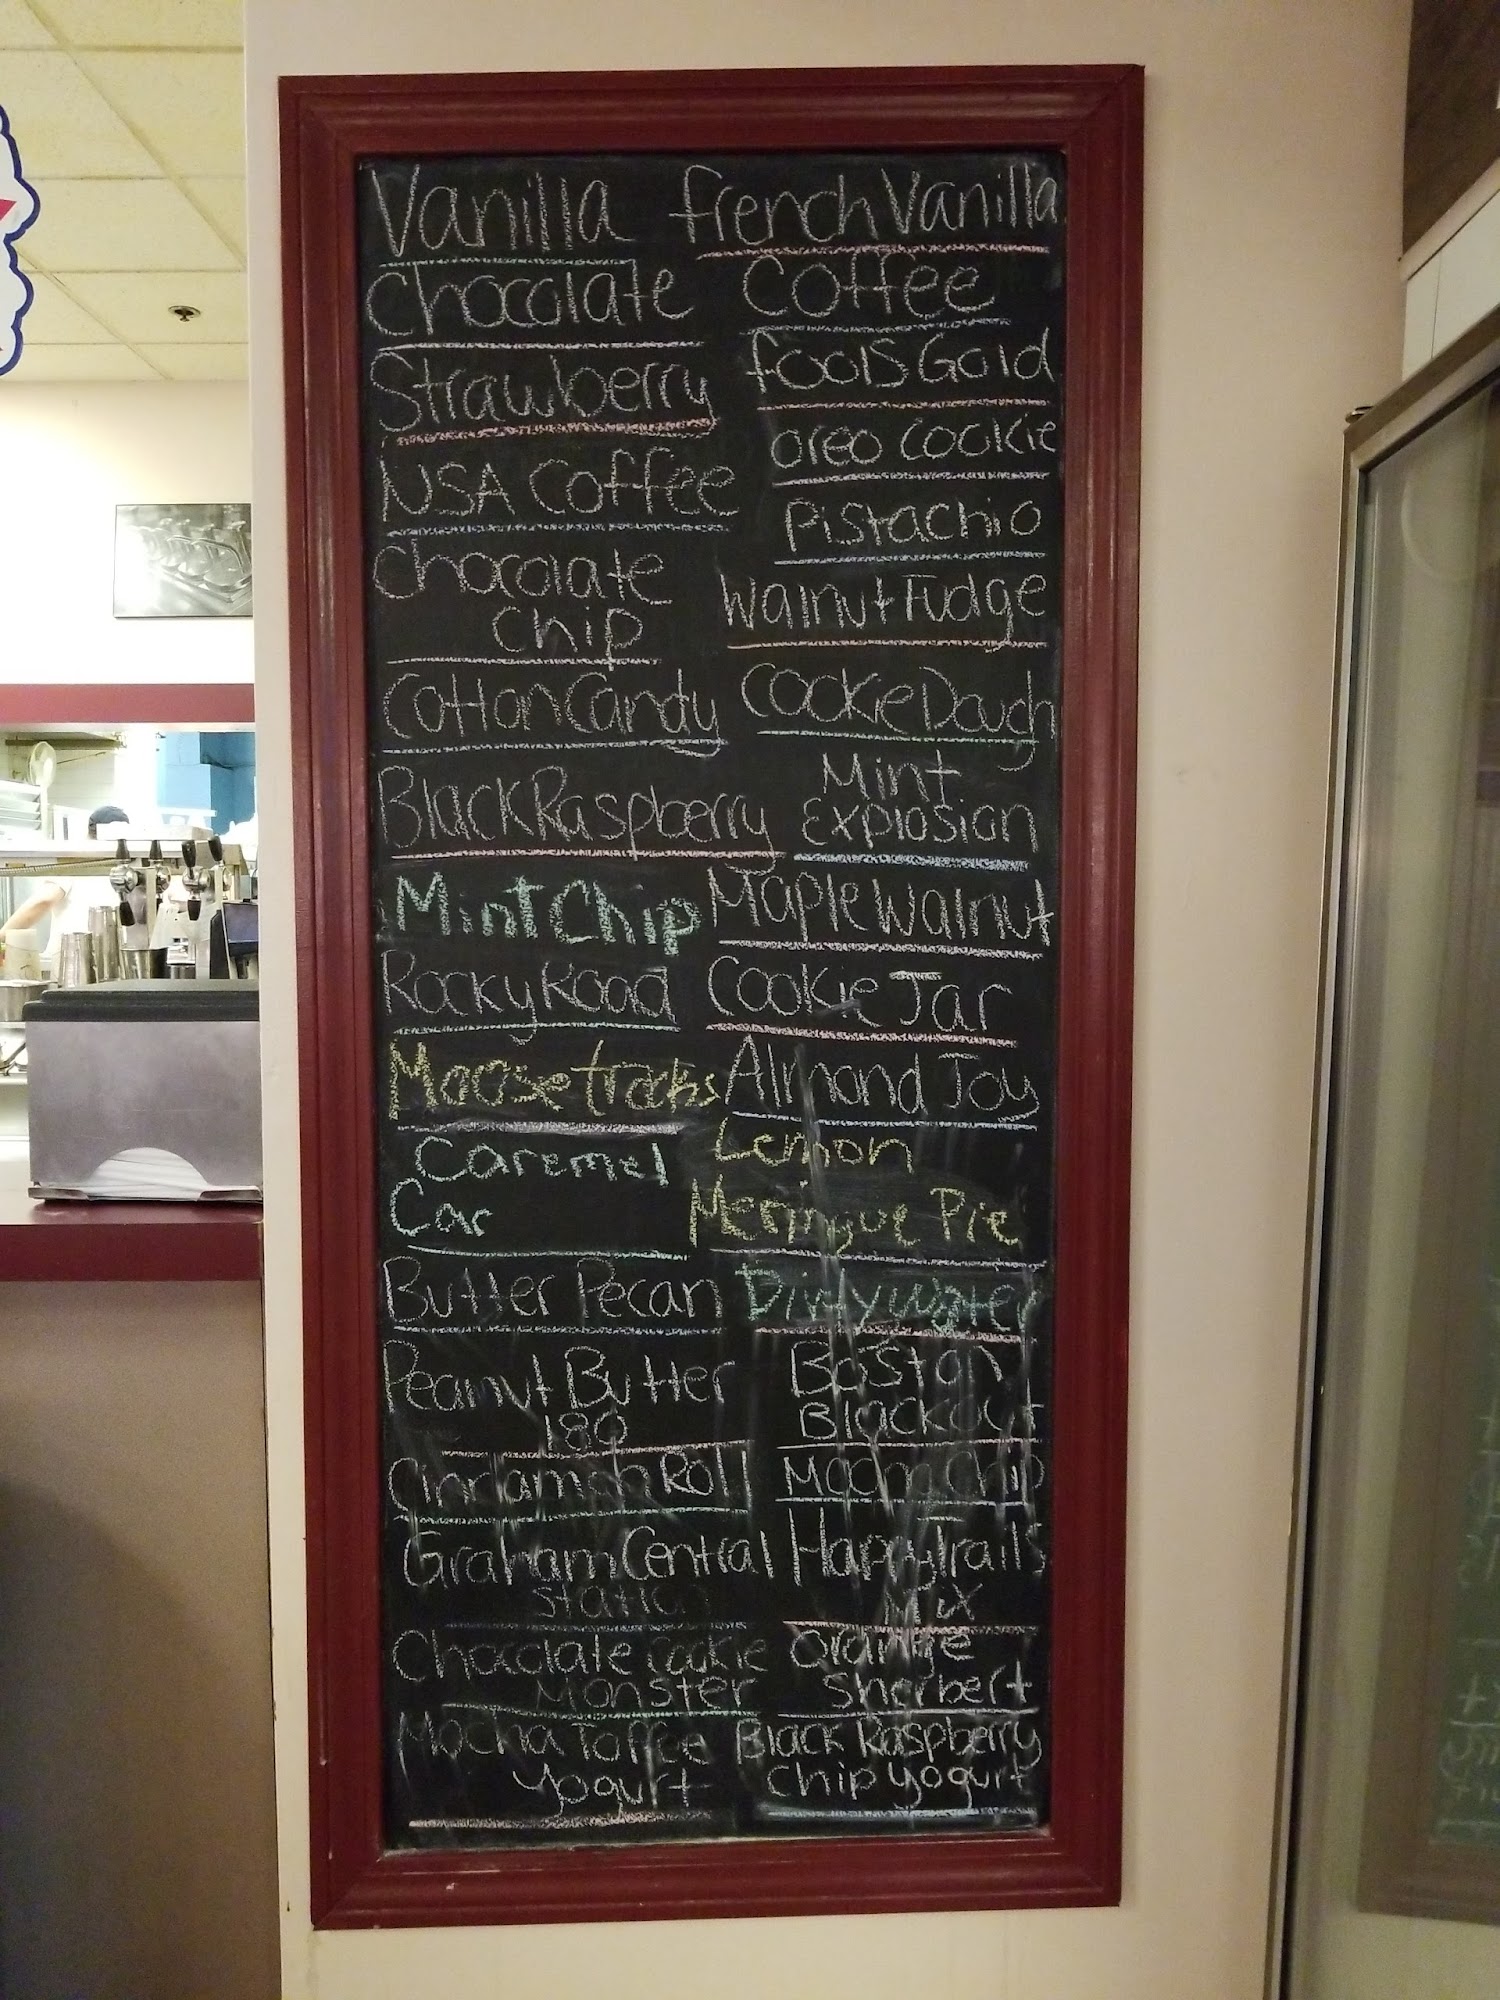 Vanilla
Chocolate
Strawberry
NSA Coffee
Chocolate
Chip
Cotton Candy
Black Raspberry
Mint Chip
Rocky Road
Moose tracks
Caremel
Car
Butter Pecan
Peanut Butter
180
Cinnamon Roll
Graham Central
Station
Chocolate Cookie
Monster
Mocha Toffee
Yogurt
French Vanilla
Coffee
Fools Gold
Oreo Cookie
Pistachio
Walnut Fudge
Cookie Dough
Mint
Explosion
Maple Walnut
Cookie Jar
Almond Joy
Lemon
Meringue Pie
Dirty water
Boston
Blackout
Mocha Chip
Happy Trails
Mix
Orange
Sherbert
Black Raspberry
Chip Yogurt